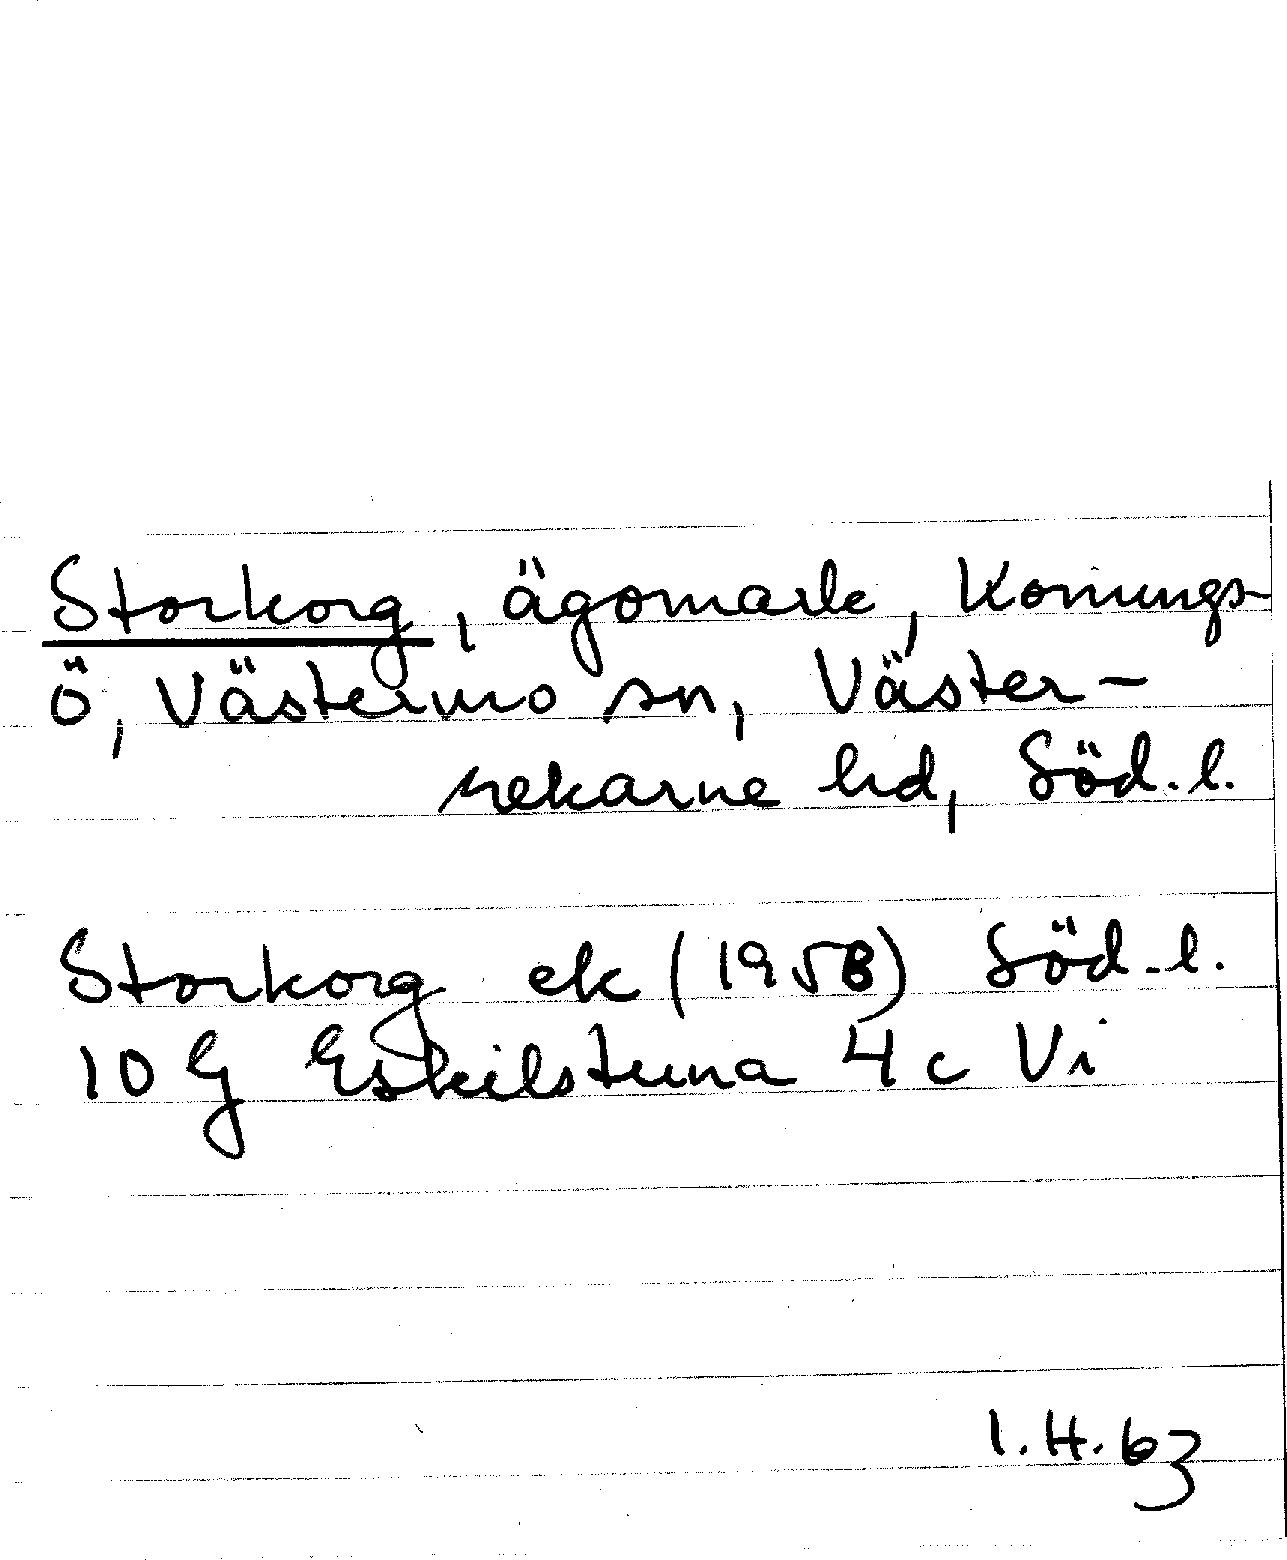 Storkorg, ägomark, Konungs-
ö, Västermo sn, Väster-
rekarne hd, Söd. l.
Storkorg ek (1958) Söd. l.
10 G Eskilstuna 4c Vi
I.H. 63